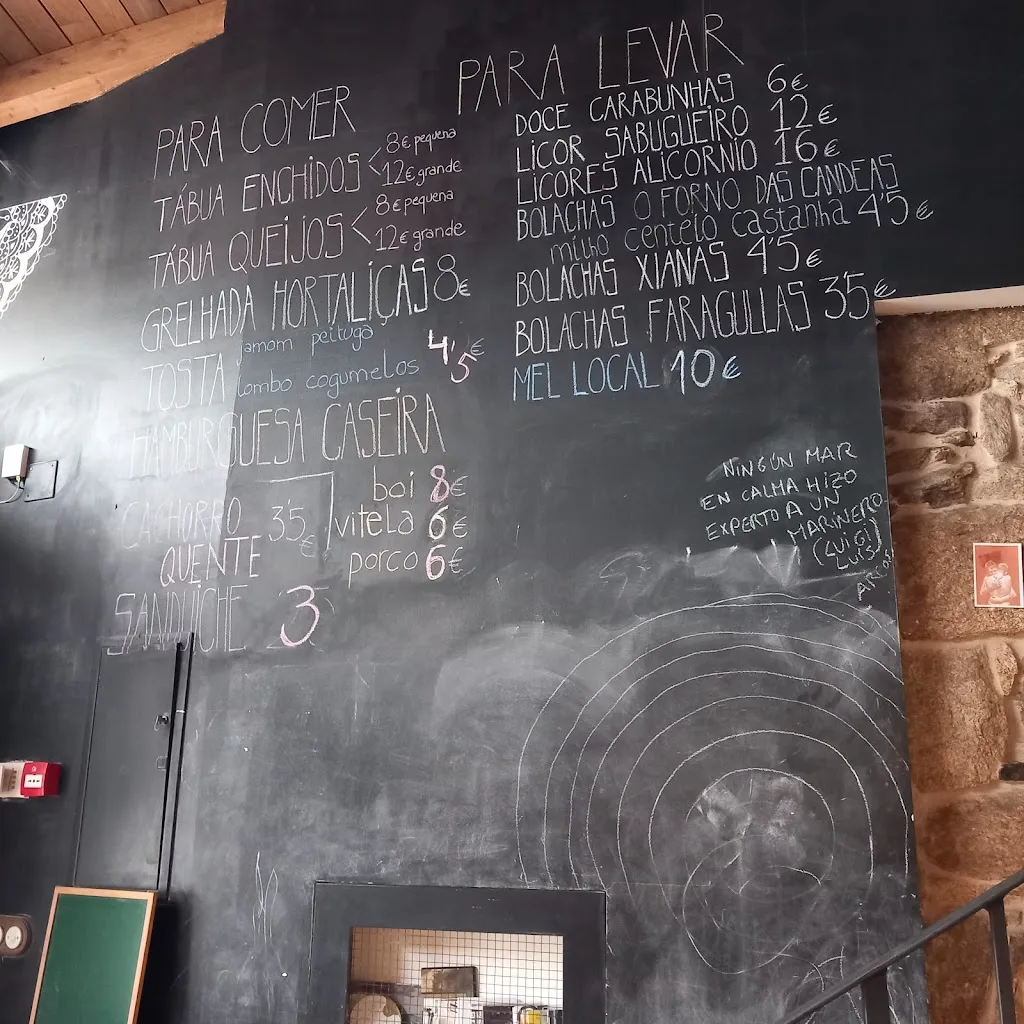 PARA COMER
TÁBUA ENCHIDOS < 8€ pequena
12€ grande
TÁBUA QUEIJOS < 8€ pequena
12€ grande
GRELHADA HORTALIÇAS 8€
TOSTA jamom peituga
lombo cogumelos 4'5€
HAMBURGUESA CASEIRA
boi 8€
vitela 6€
porco 6€
CACHORRO QUENTE 3'5€
SANDUICHE 3
PARA LEVAR
DOCE CARABUNHAS 6€
LICOR SABUGUEIRO 12€
LICORES ALICORNIO 16€
BOLACHAS O FORNO DAS CANDEAS
milho centeio castanha 4'5€
BOLACHAS XIANAS 4'5€
BOLACHAS FARAGULLAS 3'5€
MEL LOCAL 10€
NINGÚN MAR
EN CALMA HIZO
EXPERTO A UN
MARINERO
(LUIGI)
LUIS